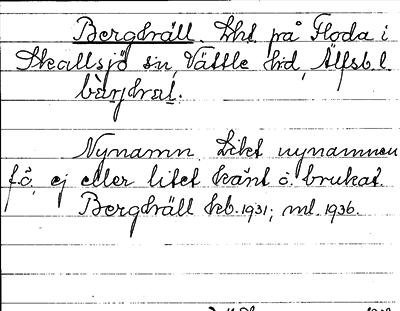 Bergkväll. Lht på Floda i
Skallsjö sn, Vättle hd, Älfsb. l.
Nynamn. Litet nynamnen
f.ö. ej eller litet känt o. brukat.
Bergkväll kb. 1931; ml. 1936.